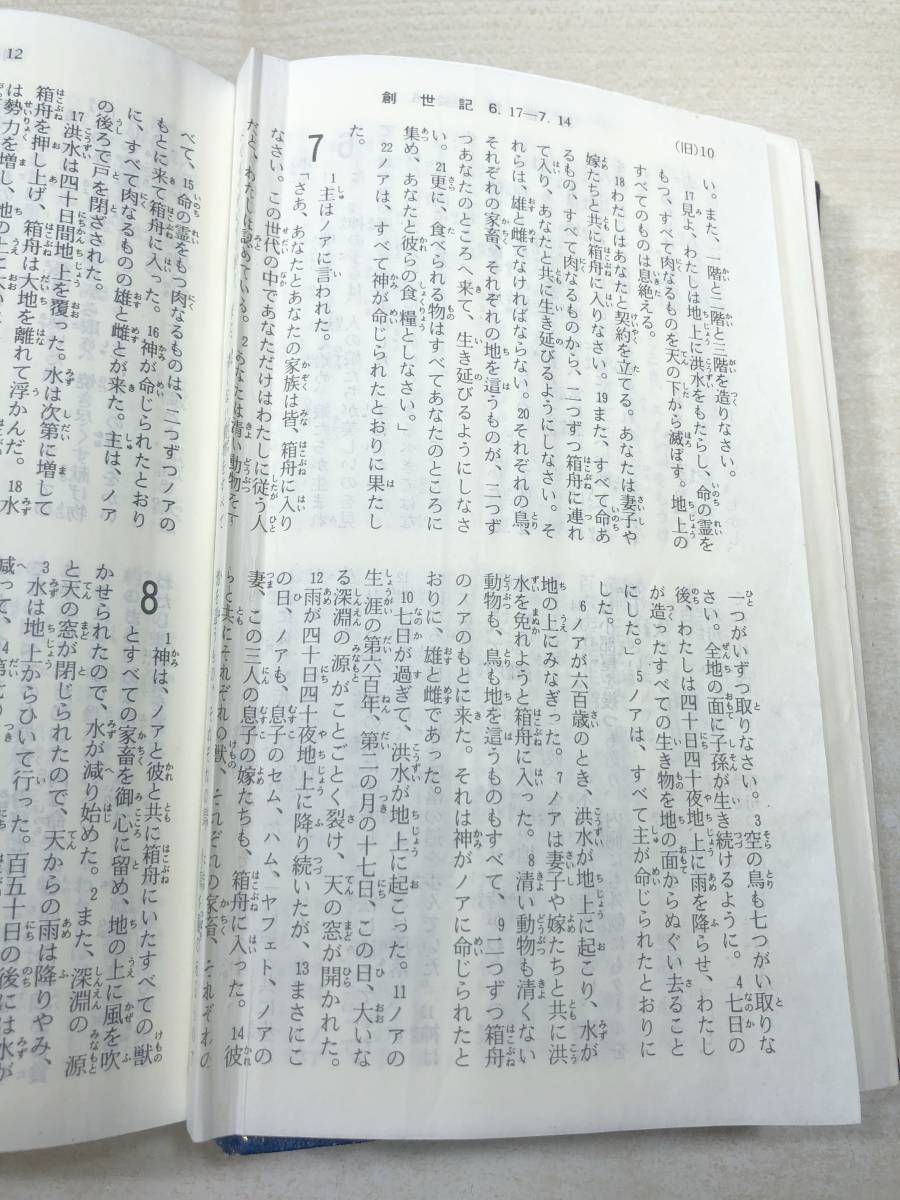 (旧)10
創世記 6.17―7.14
い。また、一階と二階と三階を造りなさい。
17見よ、わたしは地上に洪水をもたらし、命の霊を
もつ、すべて肉なるものを天の下から滅ぼす。地上の
すべてのものは息絶える。
18わたしはあなたと契約を立てる。あなたは妻子や
嫁たちと共に箱舟に入りなさい。19また、すべて命あ
るもの、すべて肉なるものから、二つずつ箱舟に連れ
て入り、あなたと共に生き延びるようにしなさい。そ
れらは、雄と雌でなければならない。20それぞれの鳥、
それぞれの家畜、それぞれの地を這うものが、二つず
つあなたのところへ来て、生き延びるようにしなさ
い。21更に、食べられる物はすべてあなたのところに
集め、あなたと彼らの食糧としなさい。」
22ノアは、すべて神が命じられたとおりに果たし
た。
7
1主はノアに言われた。
「さあ、あなたとあなたの家族は皆、箱舟に入り
なさい。この世代の中であなただけはわたしに従う人
だと、わたしは認めている。2あなたは清い動物
一つがいずつ取りなさい。3空の鳥も七つがい取りな
さい。全地の面に子孫が生き続けるように。4七日の
後、わたしは四十日四十夜地上に雨を降らせ、わたし
が造ったすべての生き物を地の面からぬぐい去ること
にした。」5ノアは、すべて主が命じられたとおりに
した。
6ノアが六百歳のとき、洪水が地上に起こり、水が
地の上にみなぎった。7ノアは妻子や嫁たちと共に洪
水を免れようと箱舟に入った。8清い動物も清くない
動物も、鳥も地を這うものもすべて、9二つずつ箱舟
のノアのもとに来た。それは神がノアに命じられたと
おりに、雄と雌であった。
10七日が過ぎて、洪水が地上に起こった。11ノアの
生涯の第六百年、第二の月の十七日、この日、大いな
る深淵の源がことごとく裂け、天の窓が開かれた。
12雨が四十日四十夜地上に降り続いたが、13まさにこ
の日、ノアも、息子のセム、ハム、ヤフェト、ノアの
妻、この三人の息子の嫁たちも、箱舟に入った。14彼
らと共にそれぞれの獣、それぞれの家畜、それぞれの
12
べて、15命の霊をもつ肉なるものは、二つずつノアの
もとに来て箱舟に入った。16神が命じられたとおり
に、すべて肉なるものの雄と雌とが来た。主は、ノア
の後ろで戸を閉ざされた。
17洪水は四十日間地上を覆った。水は次第に増して
箱舟を押し上げ、箱舟は大地を離れて浮かんだ。18水
は勢力を増し、地の上に
8
1神は、ノアと彼と共に箱舟にいたすべての獣
とすべての家畜を御心に留め、地の上に風を吹
かせられたので、水が減り始めた。2また、深淵の源
と天の窓が閉じられたので、天からの雨は降りやみ、
3水は地上からひいて行った。百五十日の後には水が
減って、